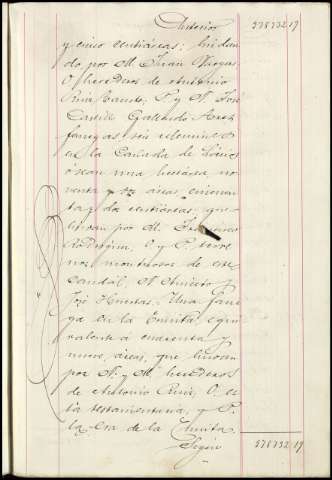 Anterior 578732 19
y cinco centiáreas; lindan
do por M. Juan Vargas
O. herederos de Antonio
Ruiz P. y N. José
Gallardo. Tres
fanegas seis celemines
en la Cañada de
ó sean una hectárea, no
venta y áreas cincuenta
y dos centiáreas, que
lindan por M. Francisco
Rodriguez, O. y P. terre
nos montuosos de este
caudal, N. Aniceto y
José Huertas. Una fane
ga en la Ermita, equi
valente á cuarenta y
nueve áreas, que lindan
por N. y M. herederos
de Antonio Ruiz, O. es
ta testamentaría, y P.
la Era de la Ermita.
Según 578732 19